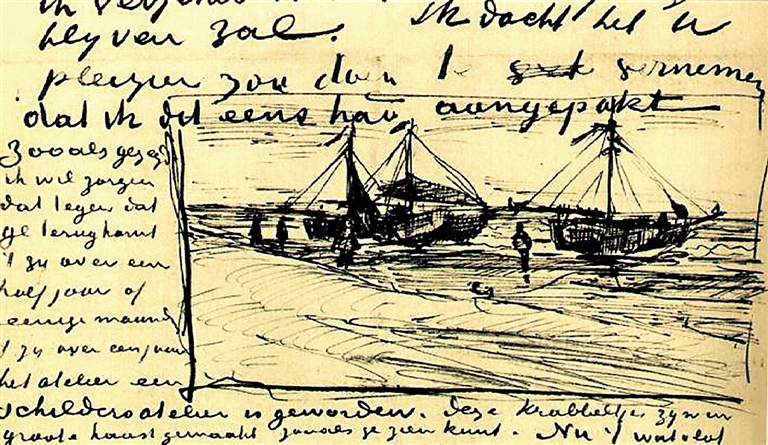 ik
blijven zal. Ik dacht het U
plezier zou doen te vernemen
dat ik dit eens had aangepakt
Zooals gezegd
ik wil zorgen
dat tegen dat
ge terugkomt
't zij over een
half jaar of
eenige maanden
't zij over een jaar
het atelier een
schildersatelier is geworden. Deze krabbeltjes zijn in
groote haast gemaakt zooals ge zien kunt. Nu 't wat